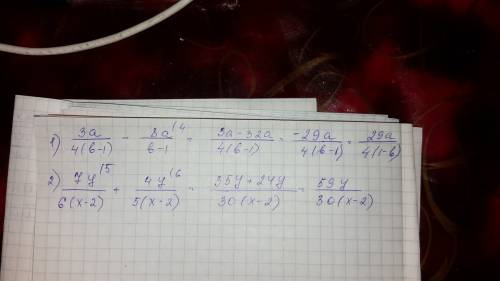 1) 3a/4(b-1) - 8a^(4/b-1 = 3a-32a/4(b-1) = -29a/4(b-1) = 29a/4(1-b)
2) 7y^(5/6(x-2) + 4y^(6/5(x-2) = 35y+24y/30(x-2) = 59y/30(x-2)